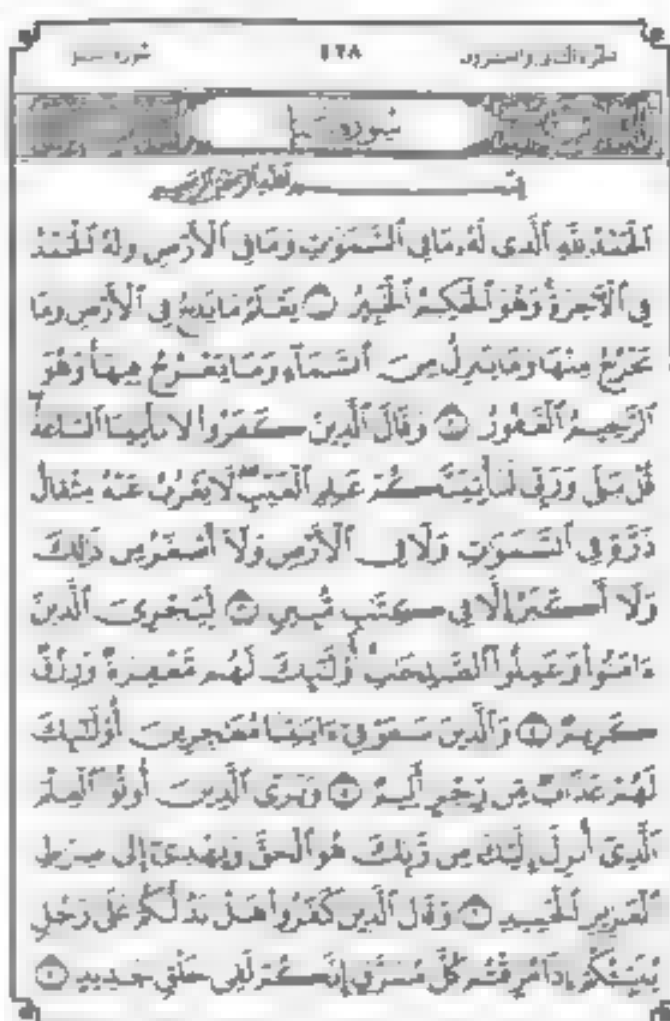 سُورَةُ سَبَإ ٤٢٨ الجزء الثاني والعشرون
سُورَةُ سَبَإ
بِسْمِ اللَّهِ الرَّحْمَٰنِ الرَّحِيمِ
ٱلْحَمْدُ لِلَّهِ ٱلَّذِى لَهُۥ مَا فِى ٱلسَّمَٰوَٰتِ وَمَا فِى ٱلْأَرْضِ وَلَهُ ٱلْحَمْدُ
فِى ٱلْأٓخِرَةِ وَهُوَ ٱلْحَكِيمُ ٱلْخَبِيرُ ١ يَعْلَمُ مَا يَلِجُ فِى ٱلْأَرْضِ وَمَا
يَخْرُجُ مِنْهَا وَمَا يَنزِلُ مِنَ ٱلسَّمَآءِ وَمَا يَعْرُجُ فِيهَا وَهُوَ
ٱلرَّحِيمُ ٱلْغَفُورُ ٢ وَقَالَ ٱلَّذِينَ كَفَرُوا۟ لَا تَأْتِينَا ٱلسَّاعَةُ
قُلْ بَلَىٰ وَرَبِّى لَتَأْتِيَنَّكُمْ عَٰلِمِ ٱلْغَيْبِ لَا يَعْزُبُ عَنْهُ مِثْقَالُ
ذَرَّةٍ فِى ٱلسَّمَٰوَٰتِ وَلَا فِى ٱلْأَرْضِ وَلَآ أَصْغَرُ مِن ذَٰلِكَ
وَلَآ أَكْبَرُ إِلَّا فِى كِتَٰبٍ مُّبِينٍ ٣ لِّيَجْزِىَ ٱلَّذِينَ
ءَامَنُوا۟ وَعَمِلُوا۟ ٱلصَّٰلِحَٰتِ أُو۟لَٰٓئِكَ لَهُم مَّغْفِرَةٌ وَرِزْقٌ
كَرِيمٌ ٤ وَٱلَّذِينَ سَعَوْ فِىٓ ءَايَٰتِنَا مُعَٰجِزِينَ أُو۟لَٰٓئِكَ
لَهُمْ عَذَابٌ مِّن رِّجْزٍ أَلِيمٌ ٥ وَيَرَى ٱلَّذِينَ أُوتُوا۟ ٱلْعِلْمَ
ٱلَّذِىٓ أُنزِلَ إِلَيْكَ مِن رَّبِّكَ هُوَ ٱلْحَقَّ وَيَهْدِىٓ إِلَىٰ صِرَٰطِ
ٱلْعَزِيزِ ٱلْحَمِيدِ ٦ وَقَالَ ٱلَّذِينَ كَفَرُوا۟ هَلْ نَدُلُّكُمْ عَلَىٰ رَجُلٍ
يُنَبِّئُكُمْ إِذَا مُزِّقْتُمْ كُلَّ مُمَزَّقٍ إِنَّكُمْ لَفِى خَلْقٍ جَدِيدٍ ٧